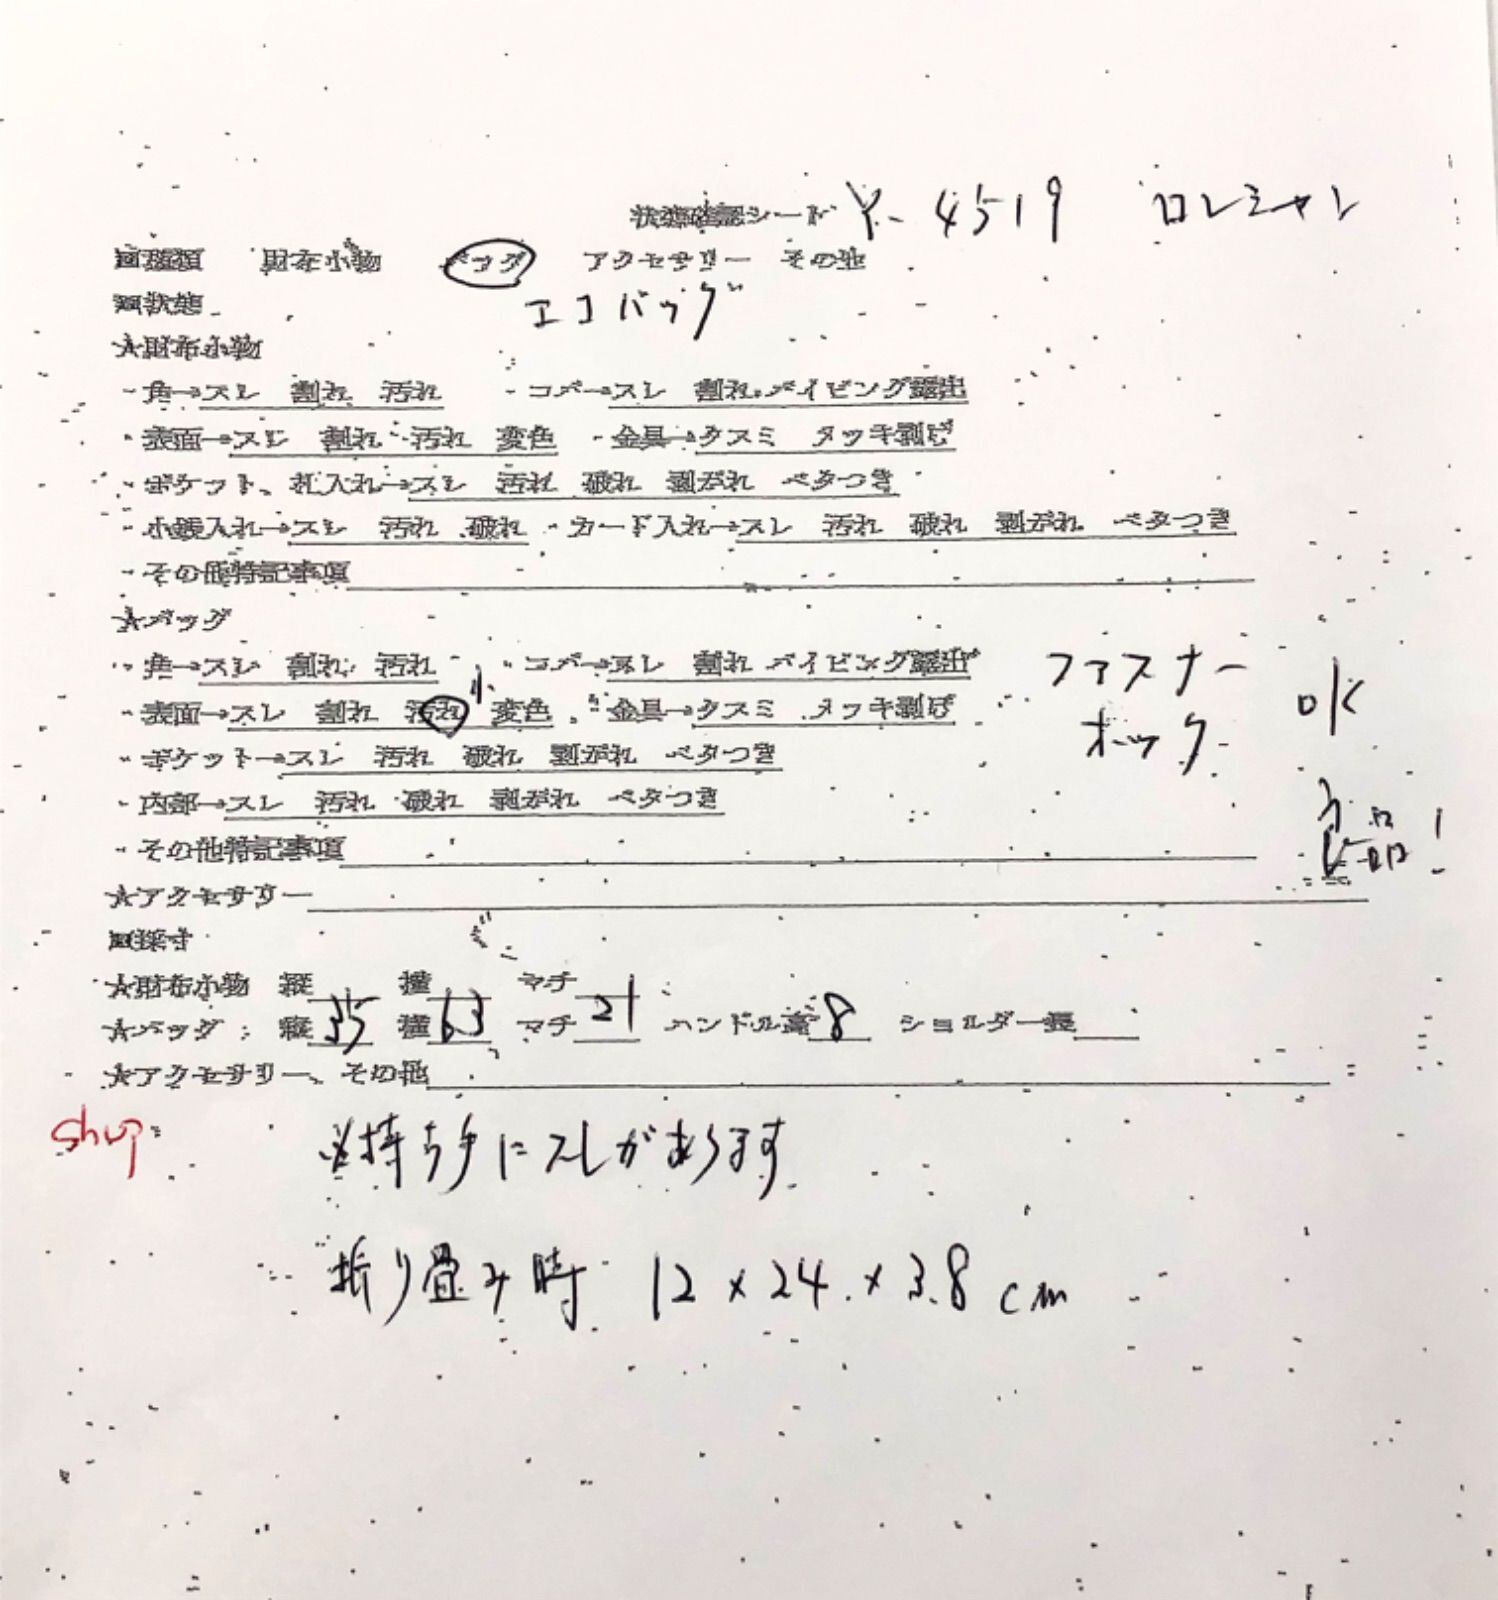 状態確認シート Y-4519 ロンシャン
■種類 財布小物 バッグ アクセサリー その他
■状態 エコバッグ
★財布小物
・角→スレ 割れ 汚れ ・コバ→スレ 割れ パイピング露出
・表面→スレ 割れ 汚れ 変色 ・金具→クスミ メッキ剥げ
・ポケット、札入れ→スレ 汚れ 破れ 剥がれ ベタつき
・小銭入れ→スレ 汚れ 破れ ・カード入れ→スレ 汚れ 破れ 剥がれ ベタつき
・その他特記事項
★バッグ
・角→スレ 割れ 汚れ ・コバ→スレ 割れ パイピング露出 ファスナー
・表面→スレ 割れ 汚れ 小 変色 ・金具→クスミ メッキ剥げ ホック OK
・ポケット→スレ 汚れ 破れ 剥がれ ベタつき
・内部→スレ 汚れ 破れ 剥がれ ベタつき
・その他特記事項
★アクセサリー
■採寸
★財布小物 縦 横 マチ
★バッグ: 縦 35 横 63 マチ 21 ハンドル高 8 ショルダー長
★アクセサリー、その他
shop
※持ち手にスレがあります
折り畳み時 12×24×3.8cm